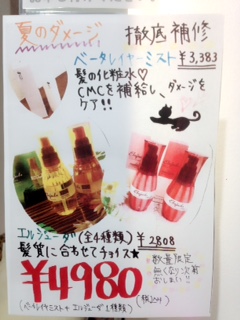 夏のダメージ、徹底補修
ベータレイヤーミスト ¥3,383
髪の化粧水♡
CMCを補給し、ダメージを
ケア!!
エルジューダ(全4種類) ¥2808
髪質に合わせてチョイス★
¥4980
数量限定
無くなり次第
おしまい!!
(税込み)
(ベータレイヤミスト + エルジューダ1種類)